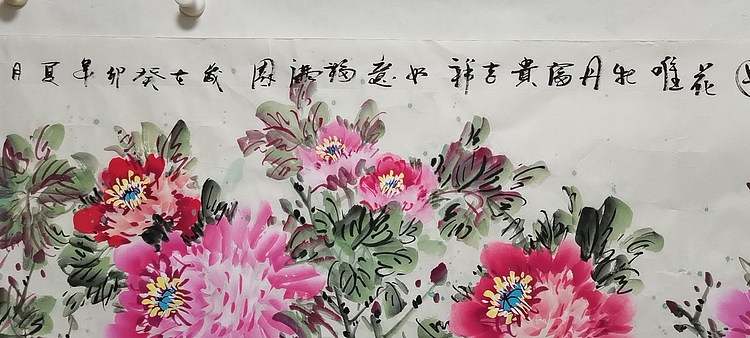 花唯牡丹富貴吉祥如意福滿園歲在癸卯年夏月